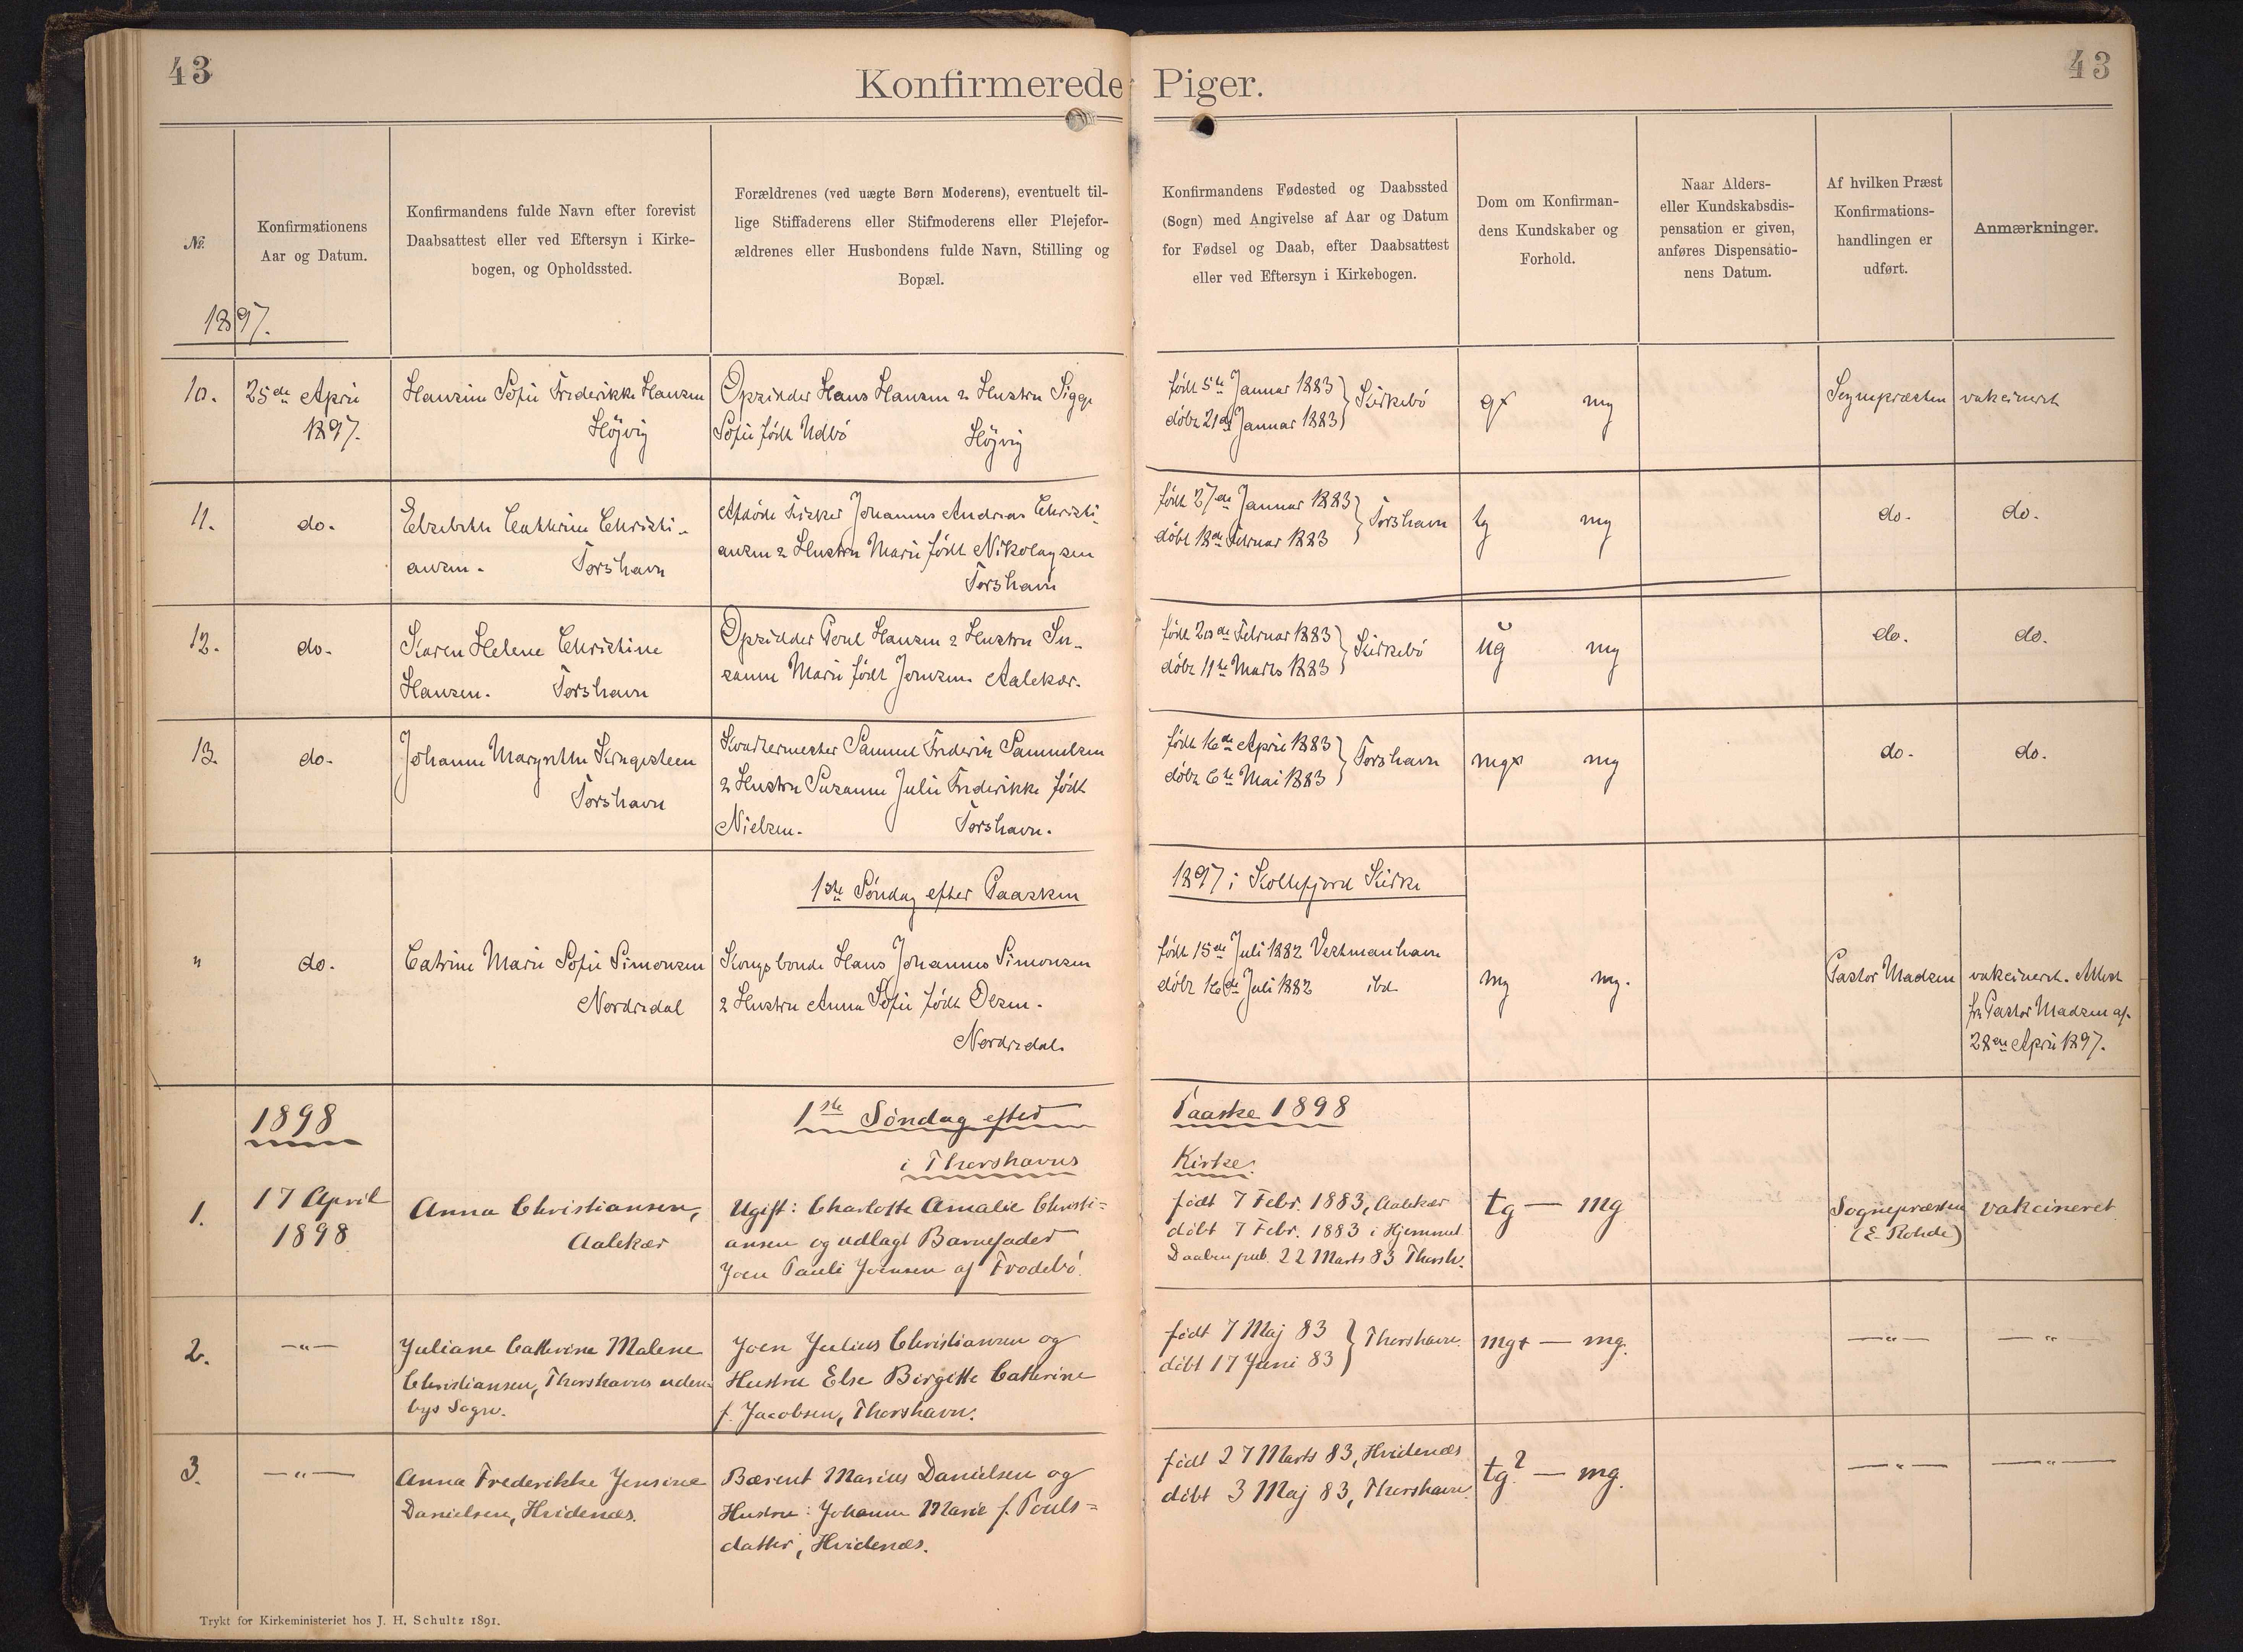 43
43
Konfirmerede Piger.
№
Konfirmationens
Aar og Datum.
Konfirmandens fulde Navn efter forevist
Daabsattest eller ved Eftersyn i Kirke-
bogen, og Opholdssted.
Forældrenes (ved uægte Børn Moderens), eventuelt til-
lige Stiffaderens eller Stifmoderens eller Plejefor-
ældrenes eller Husbondens fulde Navn, Stilling og
Bopæl.
Konfirmandens Fødested og Daabssted
(Sogn) med Angivelse af Aar og Datum
for Fødsel og Daab, efter Daabsattest
eller ved Eftersyn i Kirkebogen.
Dom om Konfirman-
dens Kundskaber og
Forhold.
Naar Alders-
eller Kundskabsdis-
pensation er given,
anføres Dispensatio-
nens Datum.
Af hvilken Præst
Konfirmations-
handlingen er
udført.
Anmærkninger.
1897.
10.
25de April
1897.
Hansine Sofie Frederikke Hansen
Höjvig
Opsidder Hans Hansen & Hustru Sigge
Sofie födt Udbö
Höjvig
födt 5te Januar 1883
döbt 21de Januar 1883
Kirkebö
g×
mg
Sognepræsten
vakcineret
11.
do.
Elsebeth Cathrine Christi-
ansen.
Torshavn
Afdöde Fisker Johannes Andreas Christi-
ansen & Hustru Marie födt Nikolaysen
Torshavn
födt 27de Januar 1883
döbt 18de Februar 1883
Torshavn
tg
mg
do.
do.
12.
do.
Karen Helene Christine
Hansen.
Torshavn
Opsidder Poul Hansen & Hustru Su-
sanne Marie födt Joensen. Aalekær.
födt 20de Februar 1883
döbt 11te Marts 1883
Kirkebö
ug
mg
do.
do.
13.
do.
Johanne Margrethe Kongesteen
Torshavn
Kvartermester Samuel Frederik Samuelsen
& Hustru Susanne Julie Frederikke födt
Nielsen.
Torshavn.
födt 16de April 1883
döbt 6te Mai 1883
Torshavn
mg×
mg
do.
do.
1ste Söndag efter Paasken
1897 i Kollefjord Kirke
"
do.
Catrine Marie Sofie Simonsen
Nordredal
Kongsbonde Hans Johannes Simonsen
& Hustru Anna Sofie födt Olsen.
Nordredal.
födt 15de Juli 1882 Vestmanhavn
döbt 16de Juli 1882 ibd.
mg
mg.
Pastor Madsen
vakcineret. Attest
fra Pastor Madsen af
28de April 1897.
1898
1ste Söndag efter
Paaske 1898
i Thorshavns
Kirke.
1.
17 April
1898
Anna Christiansen,
Aalekær
Ugift: Charlotte Amalie Christi=
ansen og udlagt Barnefader
Joen Pauli Joensen af Frodebö.
födt 7 Febr. 1883, Aalekær
döbt 7 Febr. 1883 i Hjemmet
Daaben pub. 22 Marts 83 Thorsh.
tg — mg
Sognepræsten
(E. Rohde)
vakcineret
2.
—"—
Juliane Cathrine Malene
Christiansen, Thorshavns uden-
bys Sogn.
Joen Julius Christiansen og
Hustru Else Birgitte Cathrine
f. Jacobsen, Thorshavn.
födt 7 Maj 83
döbt 17 Juni 83
Thorshavn.
mg+ — mg.
—"—
—"—
3.
—"—
Anna Frederikke Jensine
Danielsen, Hvidenæs.
Bærent Marius Danielsen og
Hustru: Johanne Marie f. Pouls=
datter, Hvidenæs.
födt 27 Marts 83, Hvidenæs
döbt 3 Maj 83, Thorshavn.
tg? — mg.
—"—
—"—
Trykt for Kirkeministeriet hos J. H. Schultz 1891.